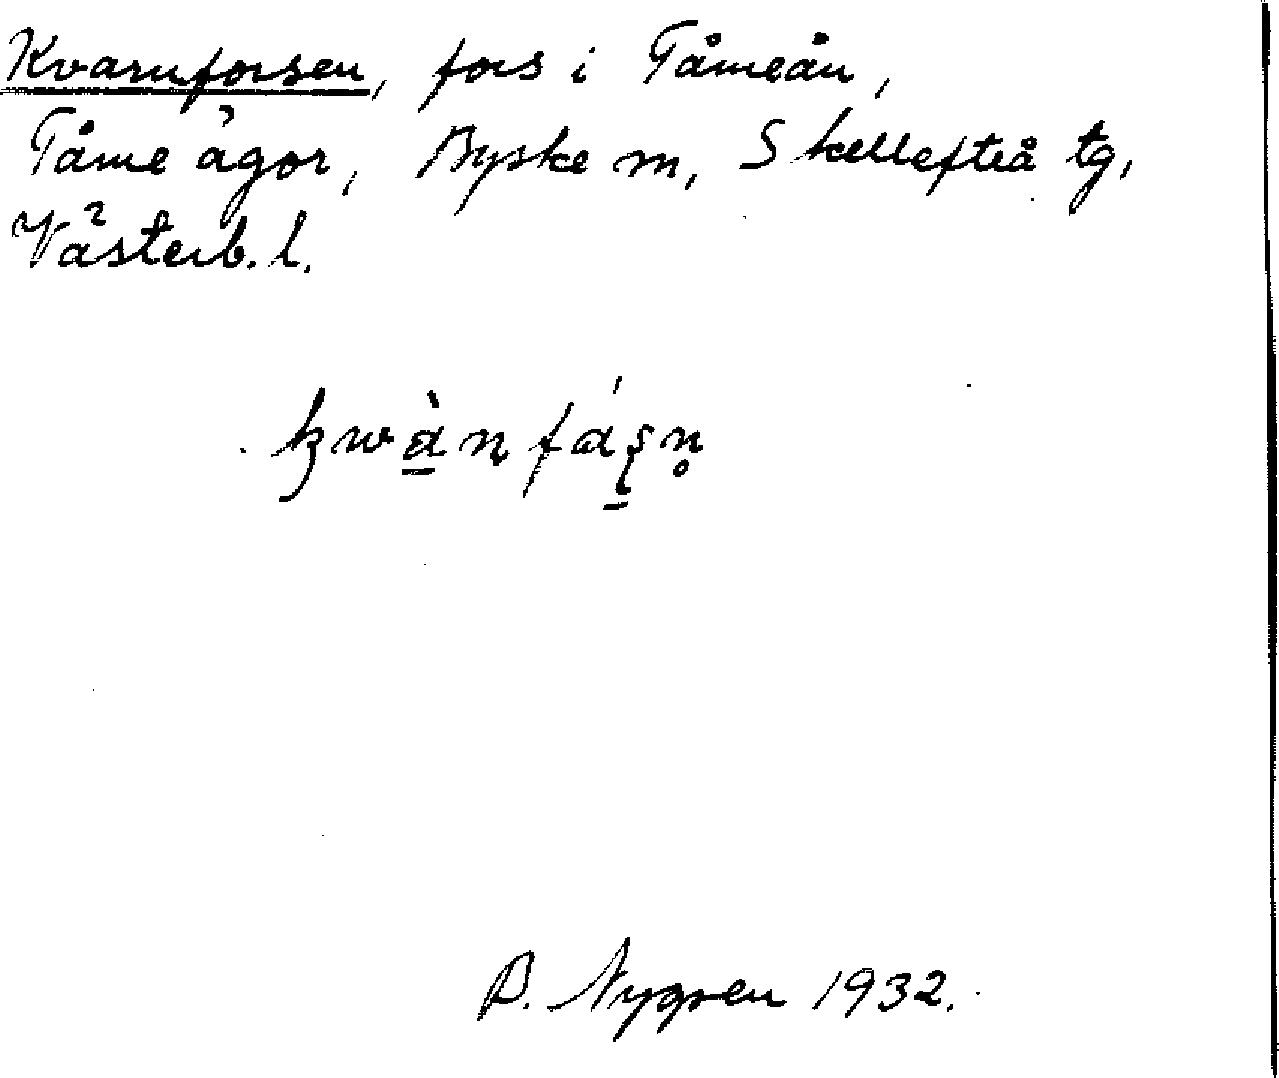 Kvarnforsen, fors i Tåmeån,
Tåme ägor, Byske sn, Skellefteå tg,
Västerb. l.
kwànfásn
B. Nygren 1932.